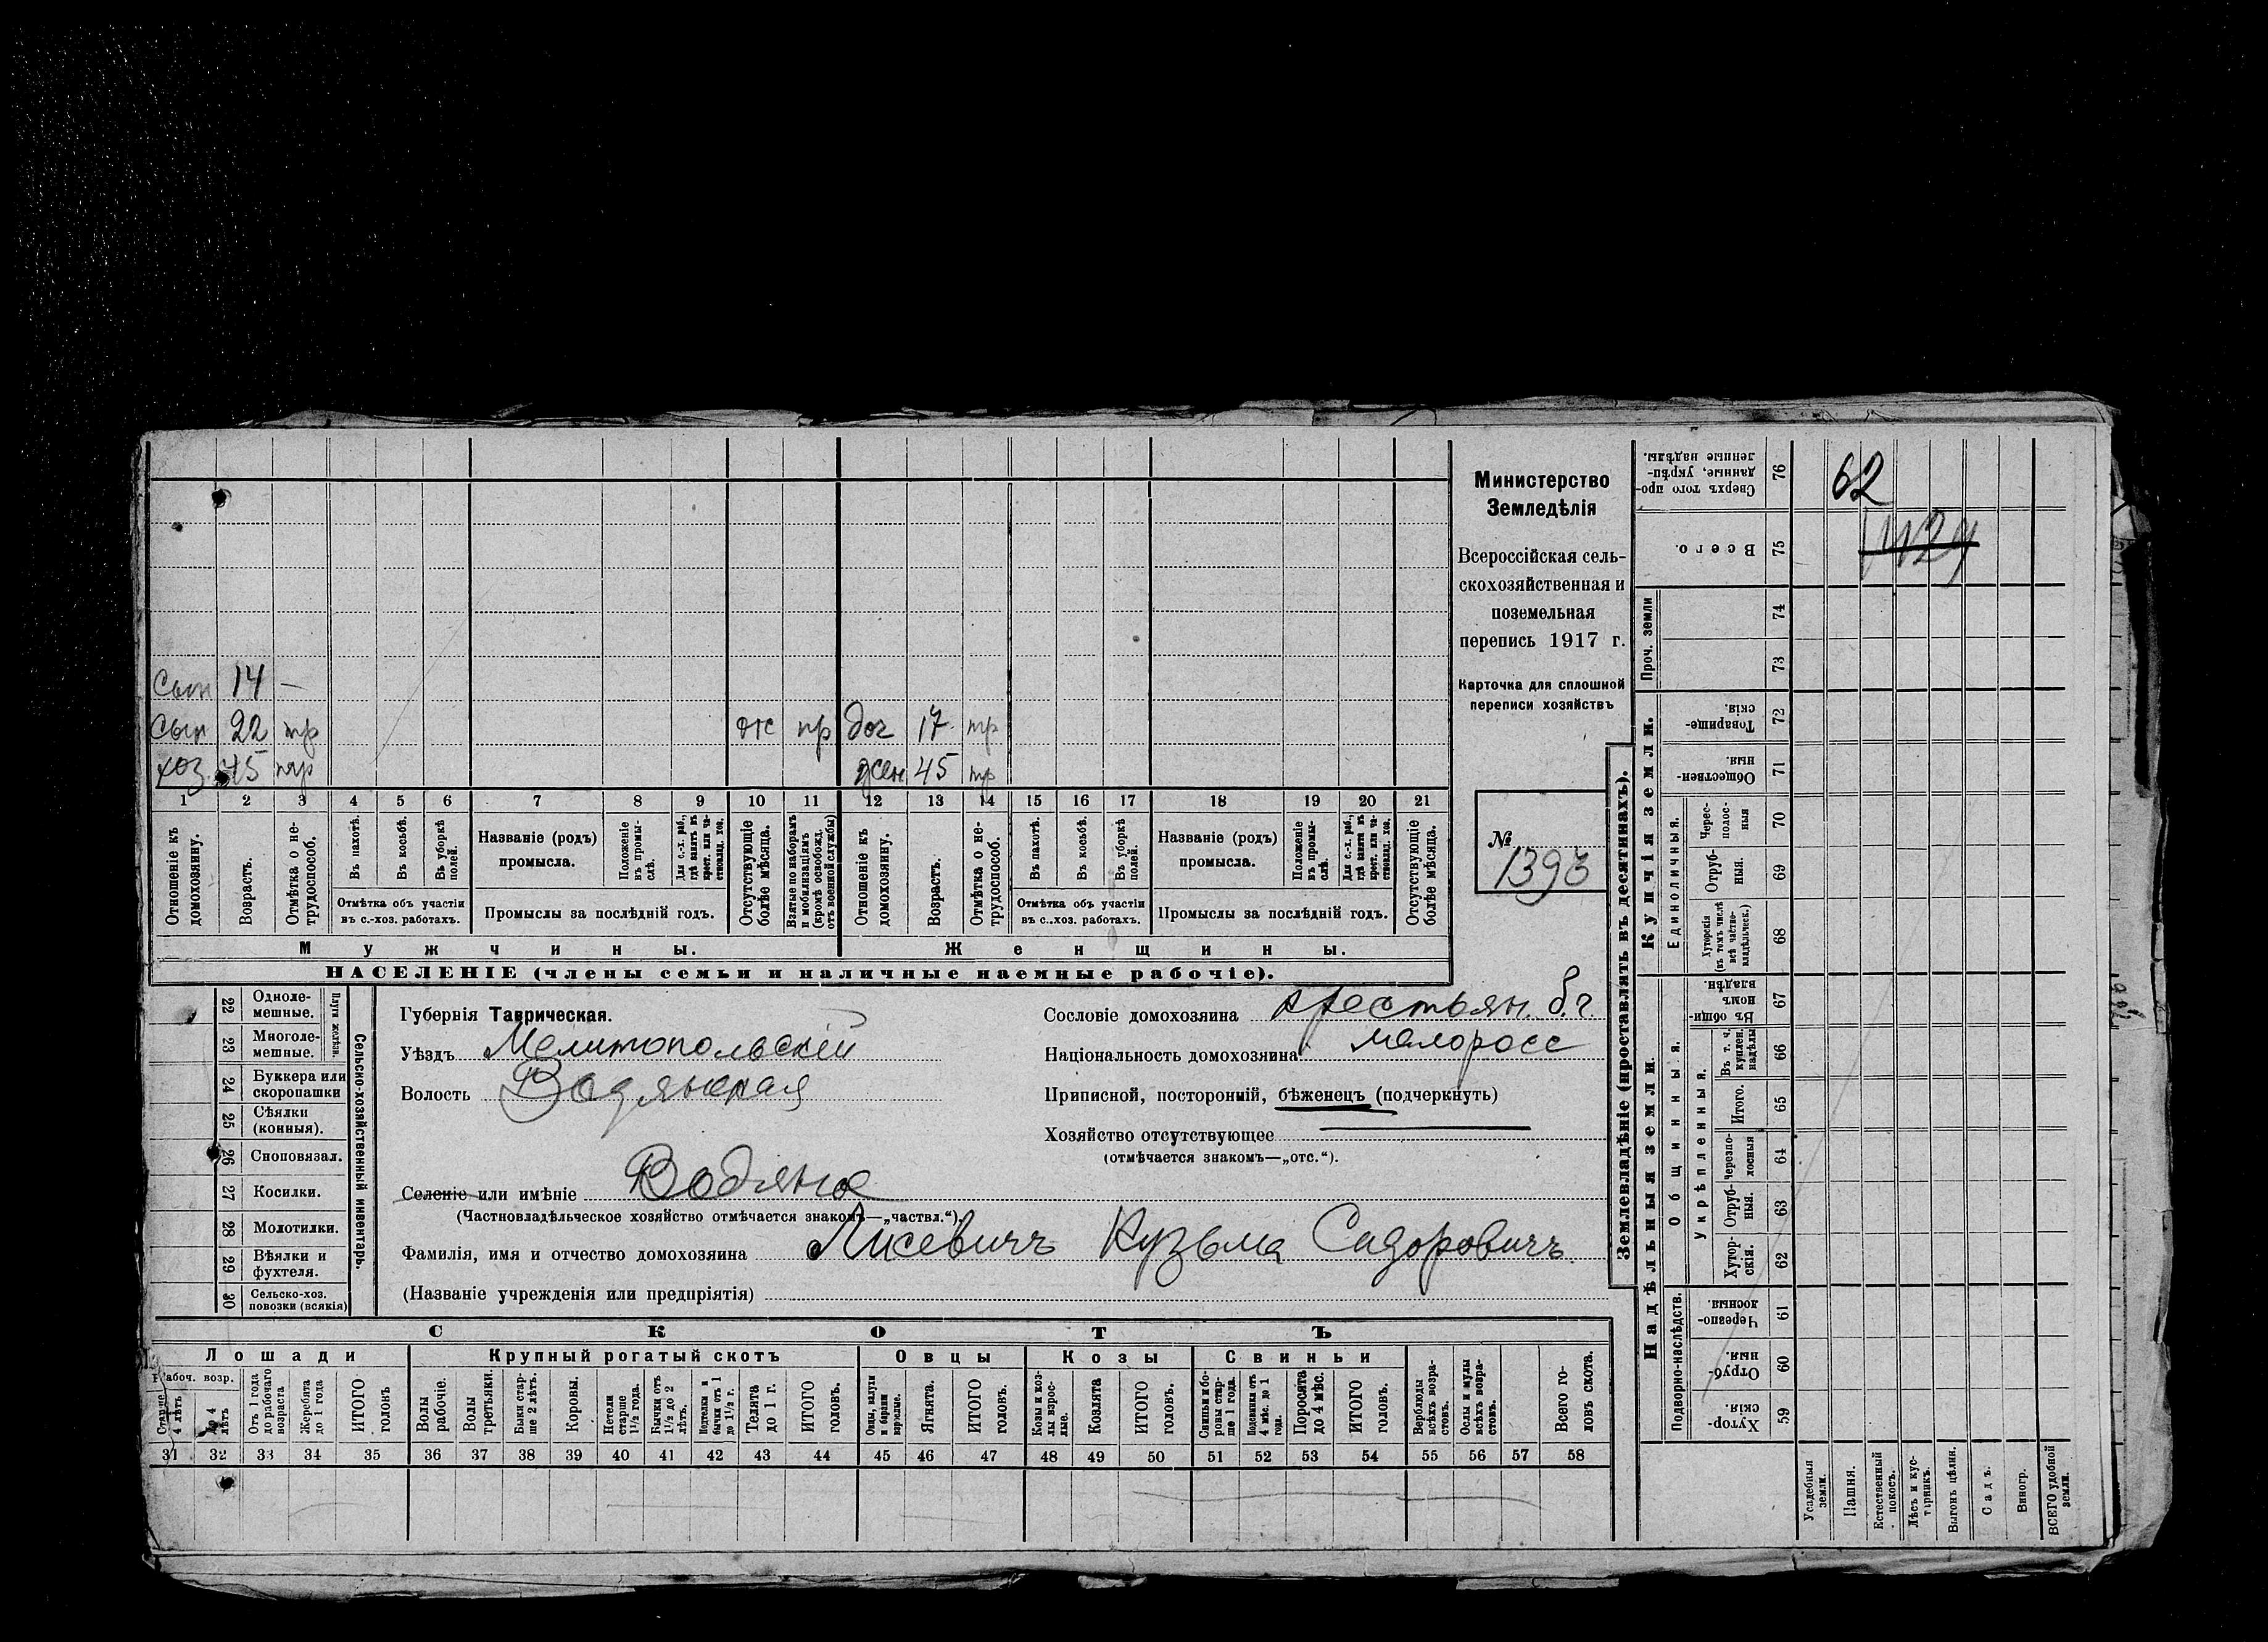 Министерство
Земледѣлія
Всероссійская сель-
скохозяйственная и
поземельная
перепись 1917 г.
Карточка для сплошной
переписи хозяйствъ
№
1393
сын 14 —
сын 22 тр отс пр доч 17 тр
хоз. 45 тр жен 45 тр
1 2 3 4 5 6 7 8 9 10 11 12 13 14 15 16 17 18 19 20 21
Отношеніе къ домохозяину.
Возрастъ.
Отмѣтка о не-трудоспособ.
Въ пахотѣ.
Въ косьбѣ.
Въ уборкѣ полей.
Отмѣтка объ участіи
въ с.-хоз. работахъ.
Названіе (родъ)
промысла.
Положеніе въ промы-слѣ.
Для с.-х. раб., гдѣ занятъ въ крест. или ча-стновлад. хоз.
Промыслы за послѣдній годъ.
Отсутствующіе болѣе мѣсяца.
Взятые по наборамъ и мобилизаціямъ (кромѣ освобожд. отъ военной службы)
Отношеніе къ домохозяину.
Возрастъ.
Отмѣтка о не-трудоспособ.
Въ пахотѣ.
Въ косьбѣ.
Въ уборкѣ полей.
Отмѣтка объ участіи
въ с.-хоз. работахъ.
Названіе (родъ)
промысла.
Положеніе въ промы-слѣ.
Для с.-х. раб., гдѣ занятъ въ крест. или ча-стновлад. хоз.
Промыслы за послѣдній годъ.
Отсутствующіе болѣе мѣсяца.
Мужчины. Женщины.
НАСЕЛЕНІЕ (члены семьи и наличные наемные рабочіе).
Сельско-хозяйственный инвентарь.
Плуги желѣзн.
22 Одноле-мешные.
23 Многоле-мешные.
24 Буккера или скоропашки
25 Сѣялки (конныя).
26 Сноповязал.
27 Косилки.
28 Молотилки.
29 Вѣялки и фухтеля.
30 Сельско-хоз. повозки (всякія)
Губернія Таврическая.
Уѣздъ Мелитопольскій
Волость Водянская
Селеніе или имѣніе Водяное
(Частновладѣльческое хозяйство отмѣчается знакомъ—„частвл.“).
Фамилія, имя и отчество домохозяина Лисевичъ Кузьма Сидоровичъ
(Названіе учрежденія или предпріятія)
Сословіе домохозяина крестьян.
Національность домохозяина малоросс
Приписной, посторонній, бѣженецъ (подчеркнуть)
Хозяйство отсутствующее
(отмѣчается знакомъ—„отс.“).
СКОТЪ
Лошади Крупный рогатый скотъ Овцы Козы Свиньи
Рабоч. возр.
Старше 4 лѣтъ
До 4 лѣтъ
Отъ 1 года до рабочаго возраста
Жеребята до 1 года
ИТОГО головъ
Волы рабочіе.
Волы третьяки.
Быки стар-ше 2 лѣтъ.
Коровы.
Нетели старше 1½ года.
Бычки отъ 1½ до 2 лѣтъ.
Подтелки и бычки отъ 1 до 1½ г.
Телята до 1 г.
ИТОГО головъ.
Овцы, валухи и бараны взрослые.
Ягнята.
ИТОГО головъ.
Козы и коз-лы взрос-лые.
Козлята
ИТОГО головъ.
Свиньи и бо-ровы стар-ше 1 года.
Подсвинки отъ 4 мѣс. до 1 года.
Поросята до 4 мѣс.
ИТОГО головъ.
Верблюды всѣхъ возра-стовъ.
Ослы и мулы всѣхъ возра-стовъ.
Всего го-ловъ скота.
31 32 33 34 35 36 37 38 39 40 41 42 43 44 45 46 47 48 49 50 51 52 53 54 55 56 57 58
Землевладѣніе (проставлять въ десятинахъ).
Надѣльныя земли.
Купчія земли.
Проч. земли
Подворно-наслѣдств.
Общинныя.
Укрѣпленныя.
Единоличныя.
Сверхъ того про-данные, укрѣп-ленные надѣлы. 76 62
Всего. 75
74
73
Товарище-скія. 72
Обществен-ныя. 71
Черес-полос-ныя 70
Отруб-ныя. 69
Хуторскія (въ томъ числѣ всѣ частно-владѣльческ.) 68
Въ общи-номъ владѣн. 67
Въ т. ч. куплен. надѣлы 66
Итого. 65
Черезпо-лосныя 64
Отруб-ныя. 63
Хутор-скія. 62
Черезпо-лосныя. 61
Отруб-ныя. 60
Хутор-скія. 59
Усадебныя земли.
Пашня.
Естественный покосъ.
Лѣсъ и кус-тарникъ.
Выгонъ цѣлин.
Садъ.
Виногр.
ВСЕГО удобной земли.